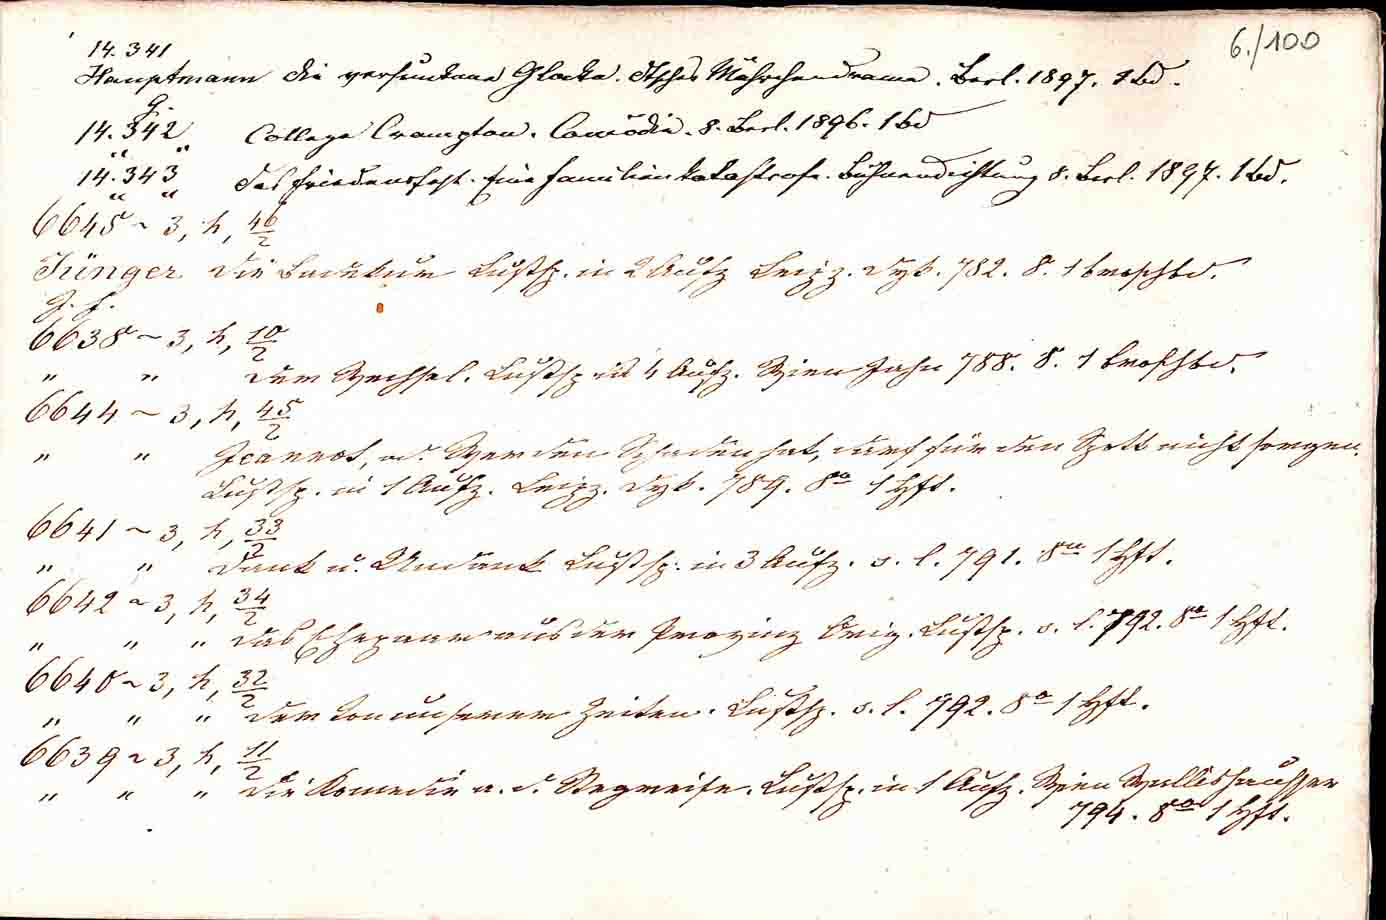 6./100
14.341
Hauptmann die versunkene Glocke. dtsches Mährchendrama. Berl. 1897. 1 bd.
G.
14.342 College Crampton. Comödie. 8. Berl. 1896. 1 bd
" "
14.343 das Friedensfest. Eine Familienkatastrofe. Bühnendichtung 8. Berl. 1897. 1 bd.
" "
6645 ~ 3, h, 46/2
Jünger die Badekur Lustsp. in 2 Aufz Leipz. Dyk. 782. 8. 1 broschbd.
J. F.
6638 ~ 3, h, 10/2
" " der Wechsel. Lustsp in 4 Aufz. Wien Jahn 788. 8. 1 broschbd.
6644 ~ 3, h, 45/2
" " Jeannot, od. Wer den Schaden hat, darf für den Spott nicht sorgen.
Lustsp. in 1 Aufz. Leipz. Dyk. 789. 8o 1 Hft.
6641 ~ 3, h, 33/2
" " Dank u. Undank Lustsp. in 3 Aufz. o. l. 791. 8o 1 Hft.
6642 ~ 3, h, 34/2
" " " das Ehepaar aus der Provinz Orig. Lustsp. o. l. 792. 8o 1 Hft.
6640 ~ 3, h, 32/2
" " " der Ton unserer Zeiten. Lustsp. o. l. 792. 8o 1 Hft.
6639 ~ 3, h, 11/2
" " " die Komedie a. d. Stegreife. Lustsp. in 1 Aufz. Wien Wallishausser
794. 8o 1 Hft.